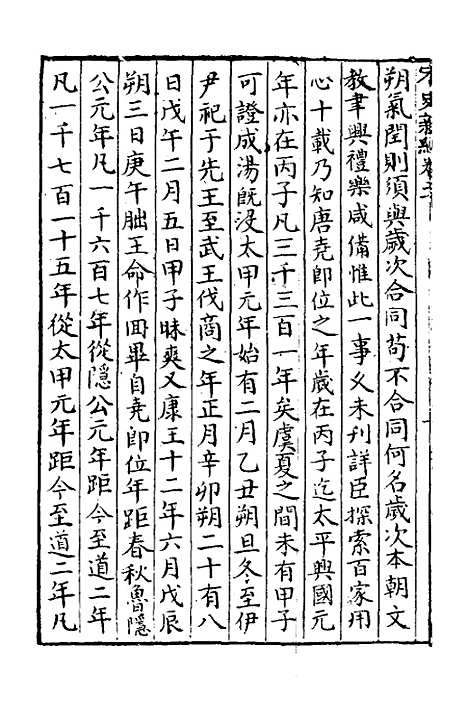 宋史新編卷
朔氣閏則須與歲次合同苟不合同何名歲次本朝文
教聿興禮樂咸備惟此一事久未刊詳臣探索百家用
心十載乃知唐堯即位之年歲在丙子迄太平興國元
年亦在丙子凡三千三百一年矣虞夏之間未有甲子
可證成湯既沒太甲元年始有二月乙丑朔旦冬至伊
尹祀于先王至武王伐商之年正月辛卯朔二十有八
日戊午二月五日甲子昧爽又康王十二年六月戊辰
朔三日庚午朏王命作冊畢自堯即位年距春秋魯隱
公元年凡一千六百七年從隱公元年距今至道二年
凡一千七百一十五年從太甲元年距今至道二年凡